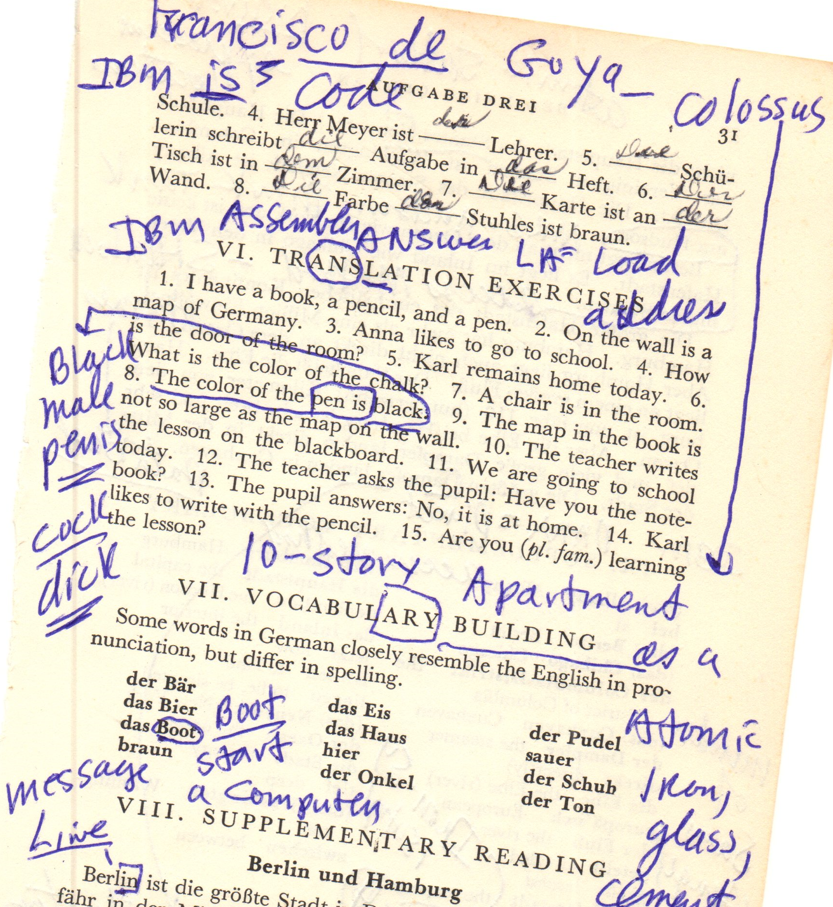 Francisco de Goya_
IBM is code Colossus
AUFGABE DREI 31
Schule. 4. Herr Meyer ist der Lehrer. 5. Die Schü-
lerin schreibt die Aufgabe in das Heft. 6. Der
Tisch ist in dem Zimmer. 7. Die Karte ist an der
Wand. 8. Die Farbe des Stuhles ist braun.
IBM Assembly ANSWER LA= Load
address
VI. TRANSLATION EXERCISES
1. I have a book, a pencil, and a pen. 2. On the wall is a
map of Germany. 3. Anna likes to go to school. 4. How
is the door of the room? 5. Karl remains home today. 6.
What is the color of the chalk? 7. A chair is in the room.
8. The color of the pen is black. 9. The map in the book is
not so large as the map on the wall. 10. The teacher writes
the lesson on the blackboard. 11. We are going to school
today. 12. The teacher asks the pupil: Have you the note-
book? 13. The pupil answers: No, it is at home. 14. Karl
likes to write with the pencil. 15. Are you (pl. fam.) learning
the lesson?
Black
male
penis
cock
dick
10-story Apartment
VII. VOCABULARY BUILDING
as a
Some words in German closely resemble the English in pro-
nunciation, but differ in spelling.
der Bär
das Bier
das Boot
braun
Boot
start
a computer
das Eis
das Haus
hier
der Onkel
der Pudel
sauer
der Schuh
der Ton
Atomic
Iron,
glass,
cement
message
Live
VIII. SUPPLEMENTARY READING
Berlin und Hamburg
Berlin ist die größte Stadt
fähr in der